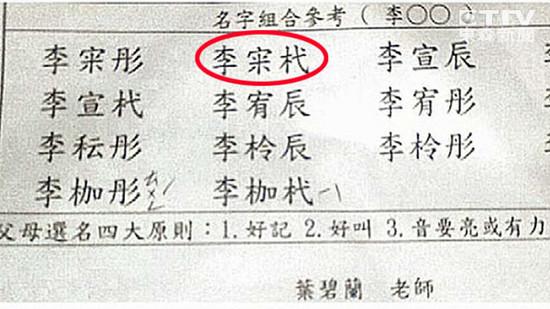 名字組合參考(李○○)
李彤 李杙 李宣辰
李宣杙 李宥辰 李宥彤
李耘彤 李柃辰 李柃彤
李枷彤 李枷杙
父母選名四大原則:1.好記 2.好叫 3.音要亮或有力
葉碧蘭 老師